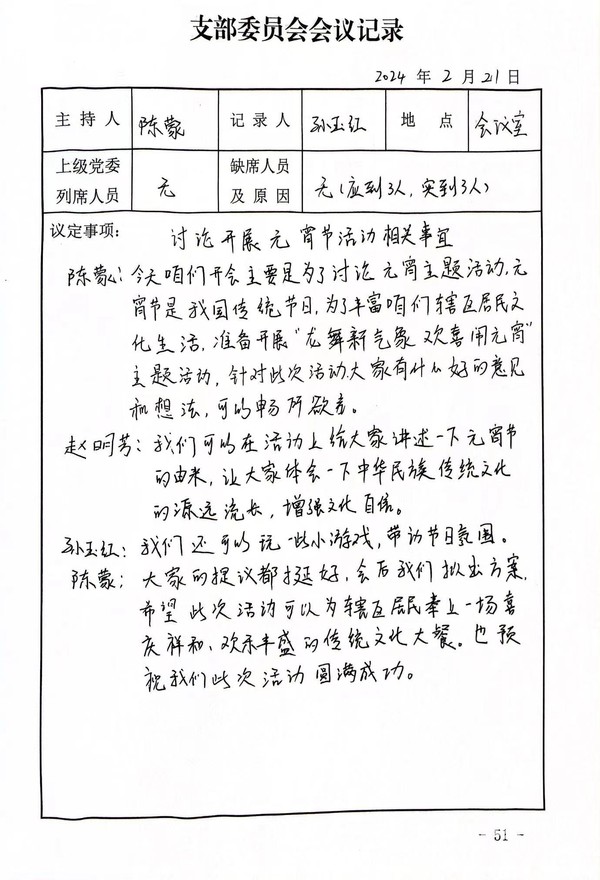 支部委员会会议记录
2024 年 2 月 21 日
主持人 陈蒙 记录人 孙玉红 地点 会议室
上级党委列席人员 无 缺席人员及原因 无(应到3人,实到3人)
议定事项: 讨论开展元宵节活动相关事宜
陈蒙:今天咱们开会主要是为了讨论元宵主题活动,元
宵节是我国传统节日,为了丰富咱们辖区居民文
化生活,准备开展“龙舞新气象 欢喜闹元宵”
主题活动,针对此次活动大家有什么好的意见
和想法,可以畅所欲言。
赵明芳:我们可以在活动上给大家讲述一下元宵节
的由来,让大家体会一下中华民族传统文化
的源远流长,增强文化自信。
孙玉红:我们还可以玩一些小游戏,带动节日氛围。
陈蒙:大家的提议都挺好,会后我们拟出方案,
希望此次活动可以为辖区居民奉上一场喜
庆祥和、欢乐丰盛的传统文化大餐。也预
祝我们此次活动圆满成功。
- 51 -